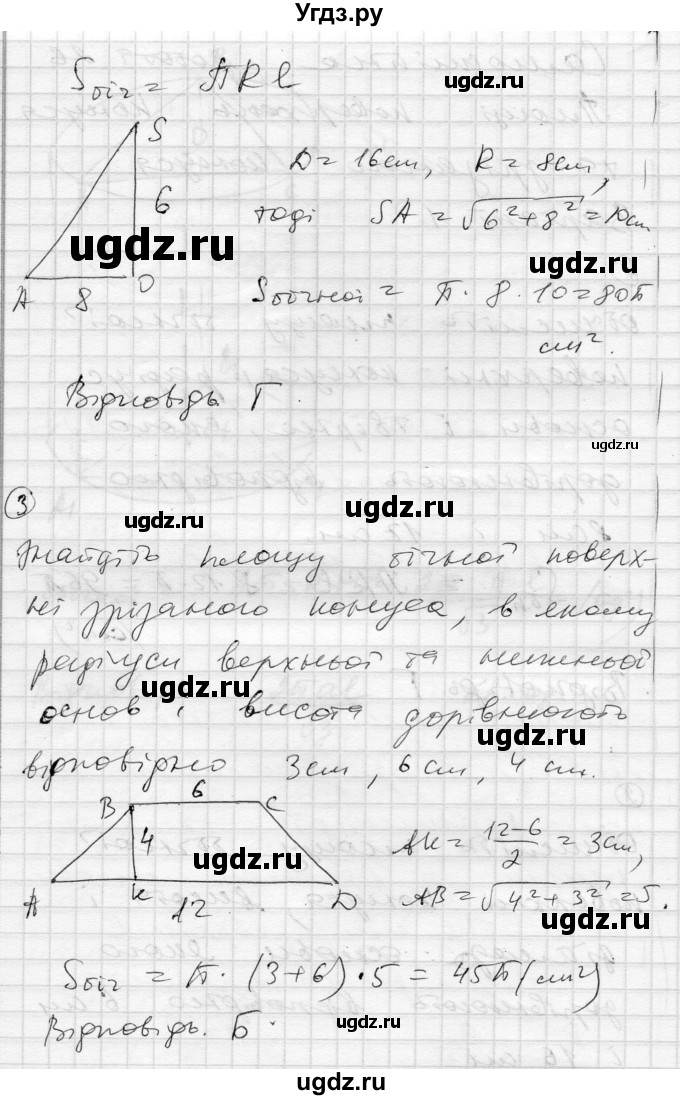 Угдз.ру
Sбіч = ПRl
ugdz.ru
S
D = 16 см, R = 8 см,
6
тоді SA = √6²+8² = 10 см
ugdz.ru
ugdz.ru
A 8 O
Sбічної = П · 8 · 10 = 80П
см².
Відповідь Г.
ugdz.ru
③
ugdz.ru
ugdz.ru
Знайдіть площу бічної поверх-
ні зрізаного конуса, в якому
радіуси верхньої та нижньої
ugdz.ru
основ і висота дорівнюють
ugdz.ru
відповідно 3 см, 6 см, 4 см.
B 6 C
4
AK = 12-6/2 = 3 см,
ugdz.ru
A K 12 D
AB = √4²+3² = 5.
ugdz.ru
Sбіч = П · (3+6) · 5 = 45П (см²)
Відповідь. Б.
ugdz.ru
ugdz.ru